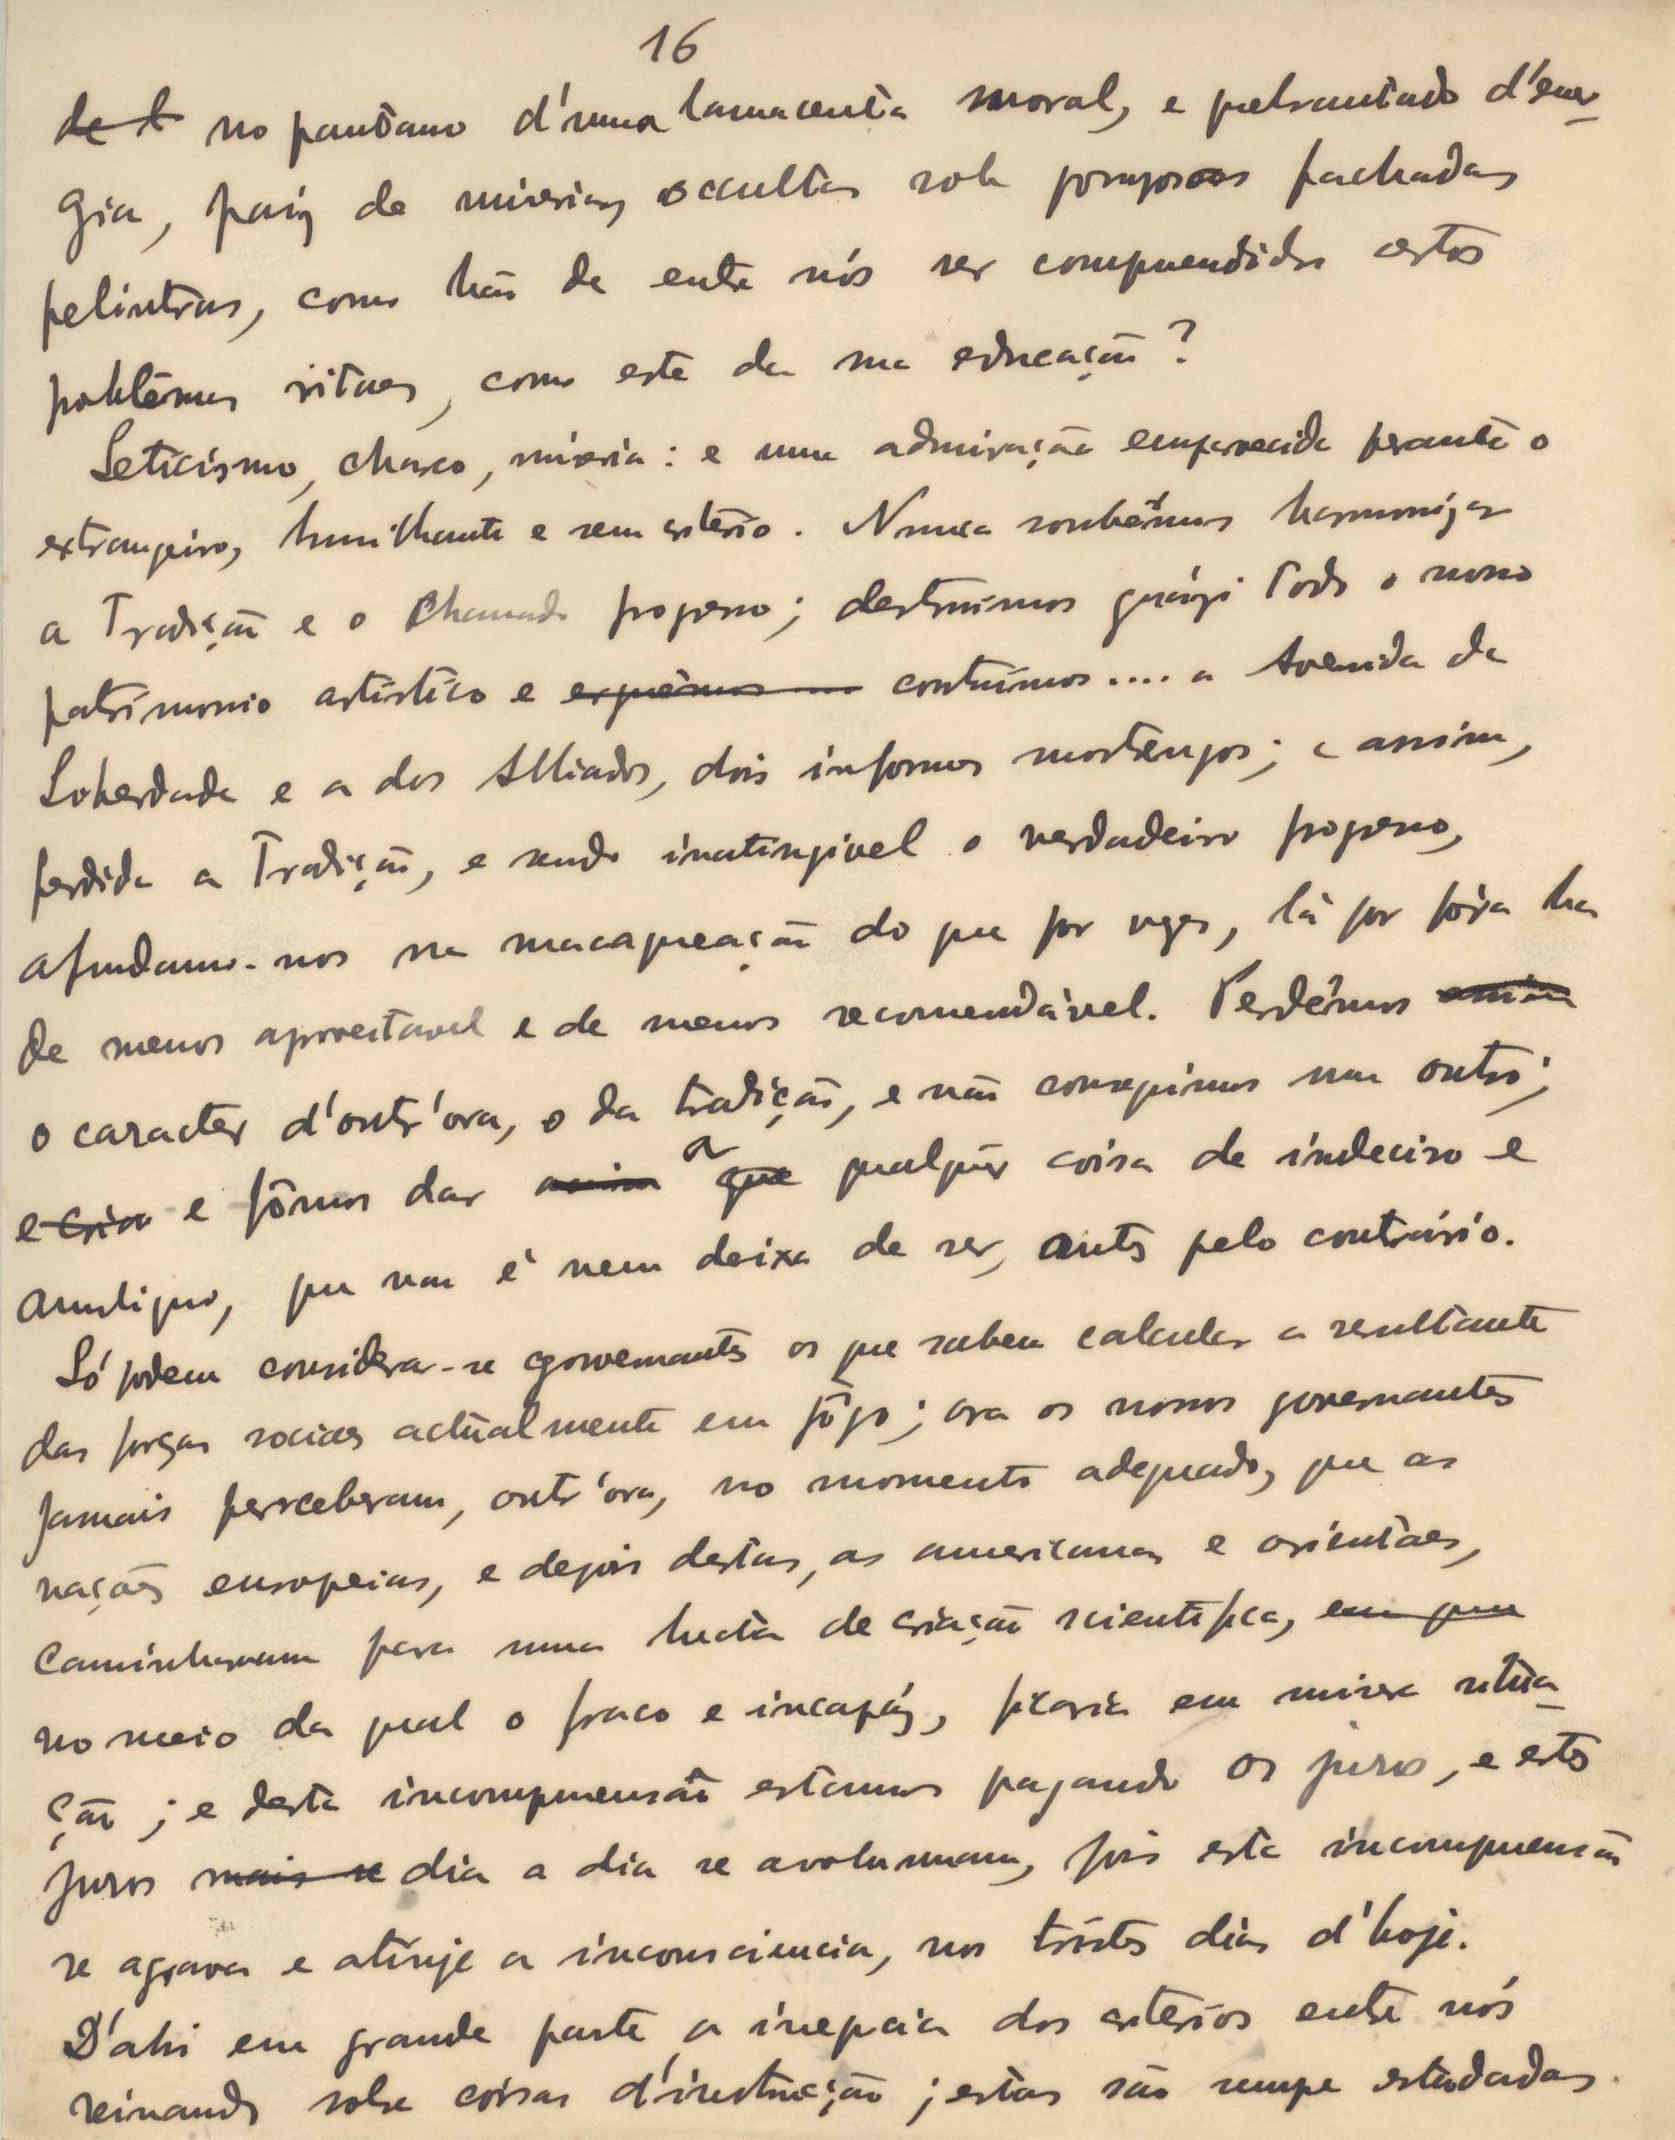 16
~~de t~~ no pantano d'uma lamacenta moral, e quebrantado d'ener-
gia, paiz de miserias occultas sob pomposas fachadas
pelintras, como hão de entre nós ser comprendidos estos
problêmas vitaes, como este da sua educação?
Seticismo, charco, miseria: e uma admiração emparvecida perante o
extrangeiro, humilhante e sem criterio. Nunca soubémos harmonizar
a Tradição e o chamado progresso; destruimos quási todo o nosso
patrímonio artistico e ~~erguêmos~~ contruimos.... a Avenida da
Loberdade e a dos Alliados, dois informes mostrengos; e assim,
perdida a Tradição, e sendo inatingivel o verdadeiro progresso,
afundamo-nos na macaqueação do que por vezes, lá por fóra ha
de menos aproveitavel e de menos recomendável. Perdêmos ~~assim~~
o caracter d'outr'ora, o da tradição, e não conseguimos um outro;
~~e cria~~ e fômos dar ~~assim~~ a ~~que~~ qualquer coisa de indeciso e
ambiguo, que nem é nem deixa de ser, antes pelo contrário.
Só podem considerar-se governantes os que sabem calcular a resultante
das forças sociaes actualmente em jôgo; ora os nossos governantes
jamais perceberam, outr'ora, no momento adequado, que as
nações europeias, e depois destas, as americanas e orientaes,
caminhavam para uma lucta de criação scientifica, ~~em que~~
no meio da qual o fraco e incapáz, ficaria em misera situa-
ção; e desta incomprensão estamos pagando os juros, e estos
juros ~~mais se~~ dia a dia se avolumam, pois esta incomprensão
se agrava e atinje a inconsciencia, nos tristes dias d'hoje.
D'ahi em grande parte a inepcia dos criterios entre nós
reinando sobre coisas d'instrucção; estas são sempre estudadas